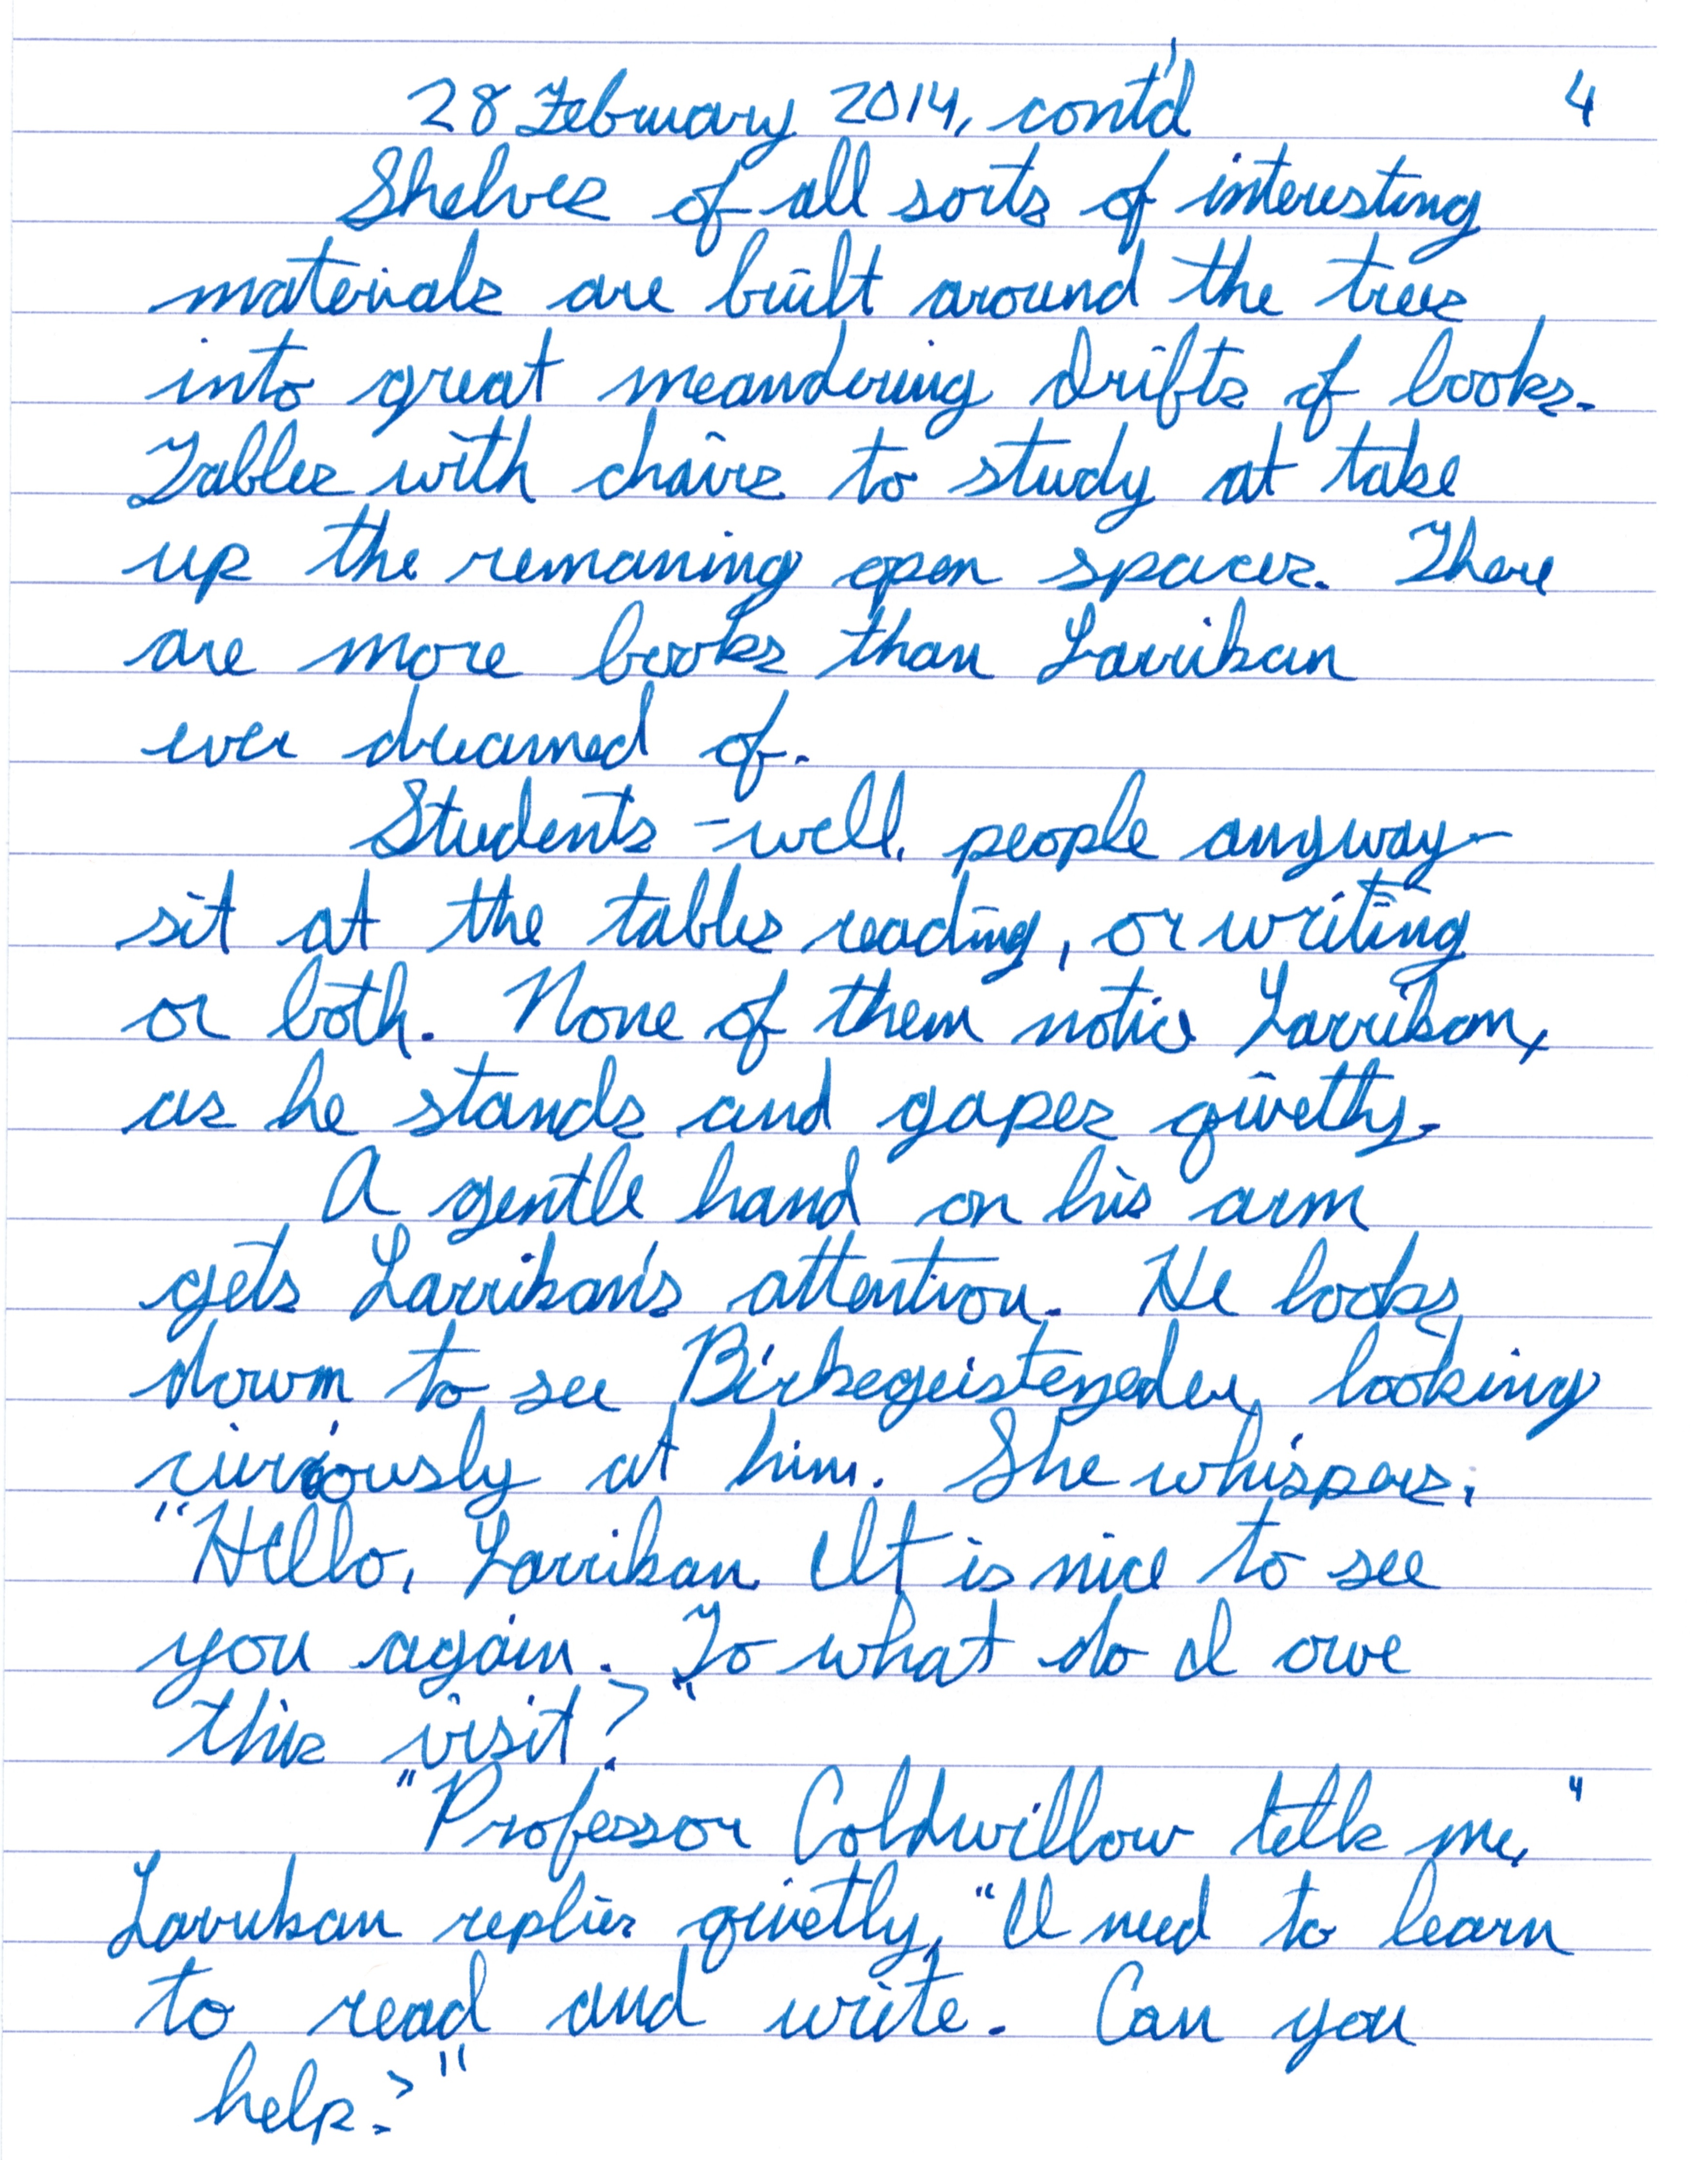 28 February 2014, cont'd 4
Shelves of all sorts of interesting
materials are built around the trees
into great meandering drifts of books.
Tables with chairs to study at take
up the remaning open spaces. There
are more books than Larrikan
ever dreamed of.
Students - well, people anyway -
sit at the tables reading, or writing
or both. None of them notice Larrikan,
as he stands and gapes qivetly.
A gentle hand on his arm
gets Larrikan's attention. He looks
down to see Birkegeistenedeu looking
curiously at him. She whispers,
"Hello, Larrikan. It is nice to see
you again. To what do I owe
this visit?"
"Professor Coldwillow tells me,"
Larrikan replies quietly, "I need to learn
to read and write. Can you
help?"